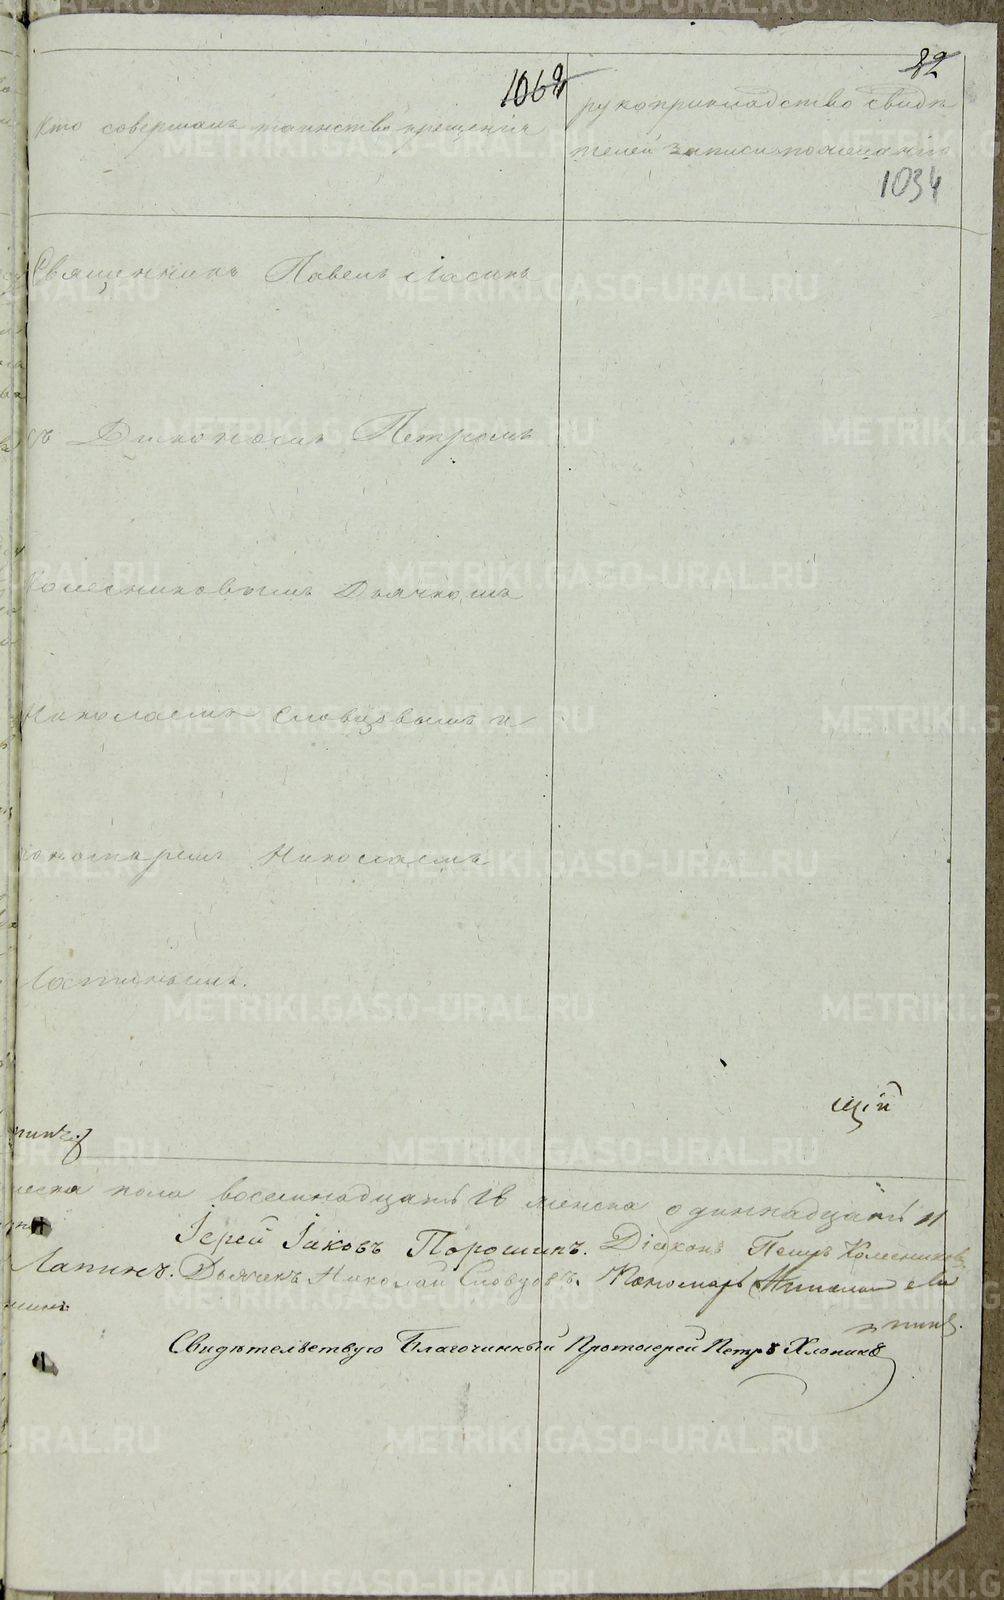 1062
22
Кто совершалъ таинство крещенія
рукоприкладство свидѣ
телей записи по желанію
1034
Священникъ Павелъ
съ Діакономъ Петромъ
Колесниковымъ Дьячкомъ
Николаемъ Словцовымъ и
Пономаремъ Николаемъ
Лапинымъ.
щій
пола восемнадцать 18 женска одиннадцать 11
Іерей Іаковъ Порошинъ. Діаконъ Петръ Колесниковъ
Лапинъ. Дьячекъ Николай Словцовъ. Пономарь Николай Ла
пинъ.
Свидѣтельствую Благочинный Протоіерей Петръ Хлопинъ
METRIKI.GASO-URAL.RU